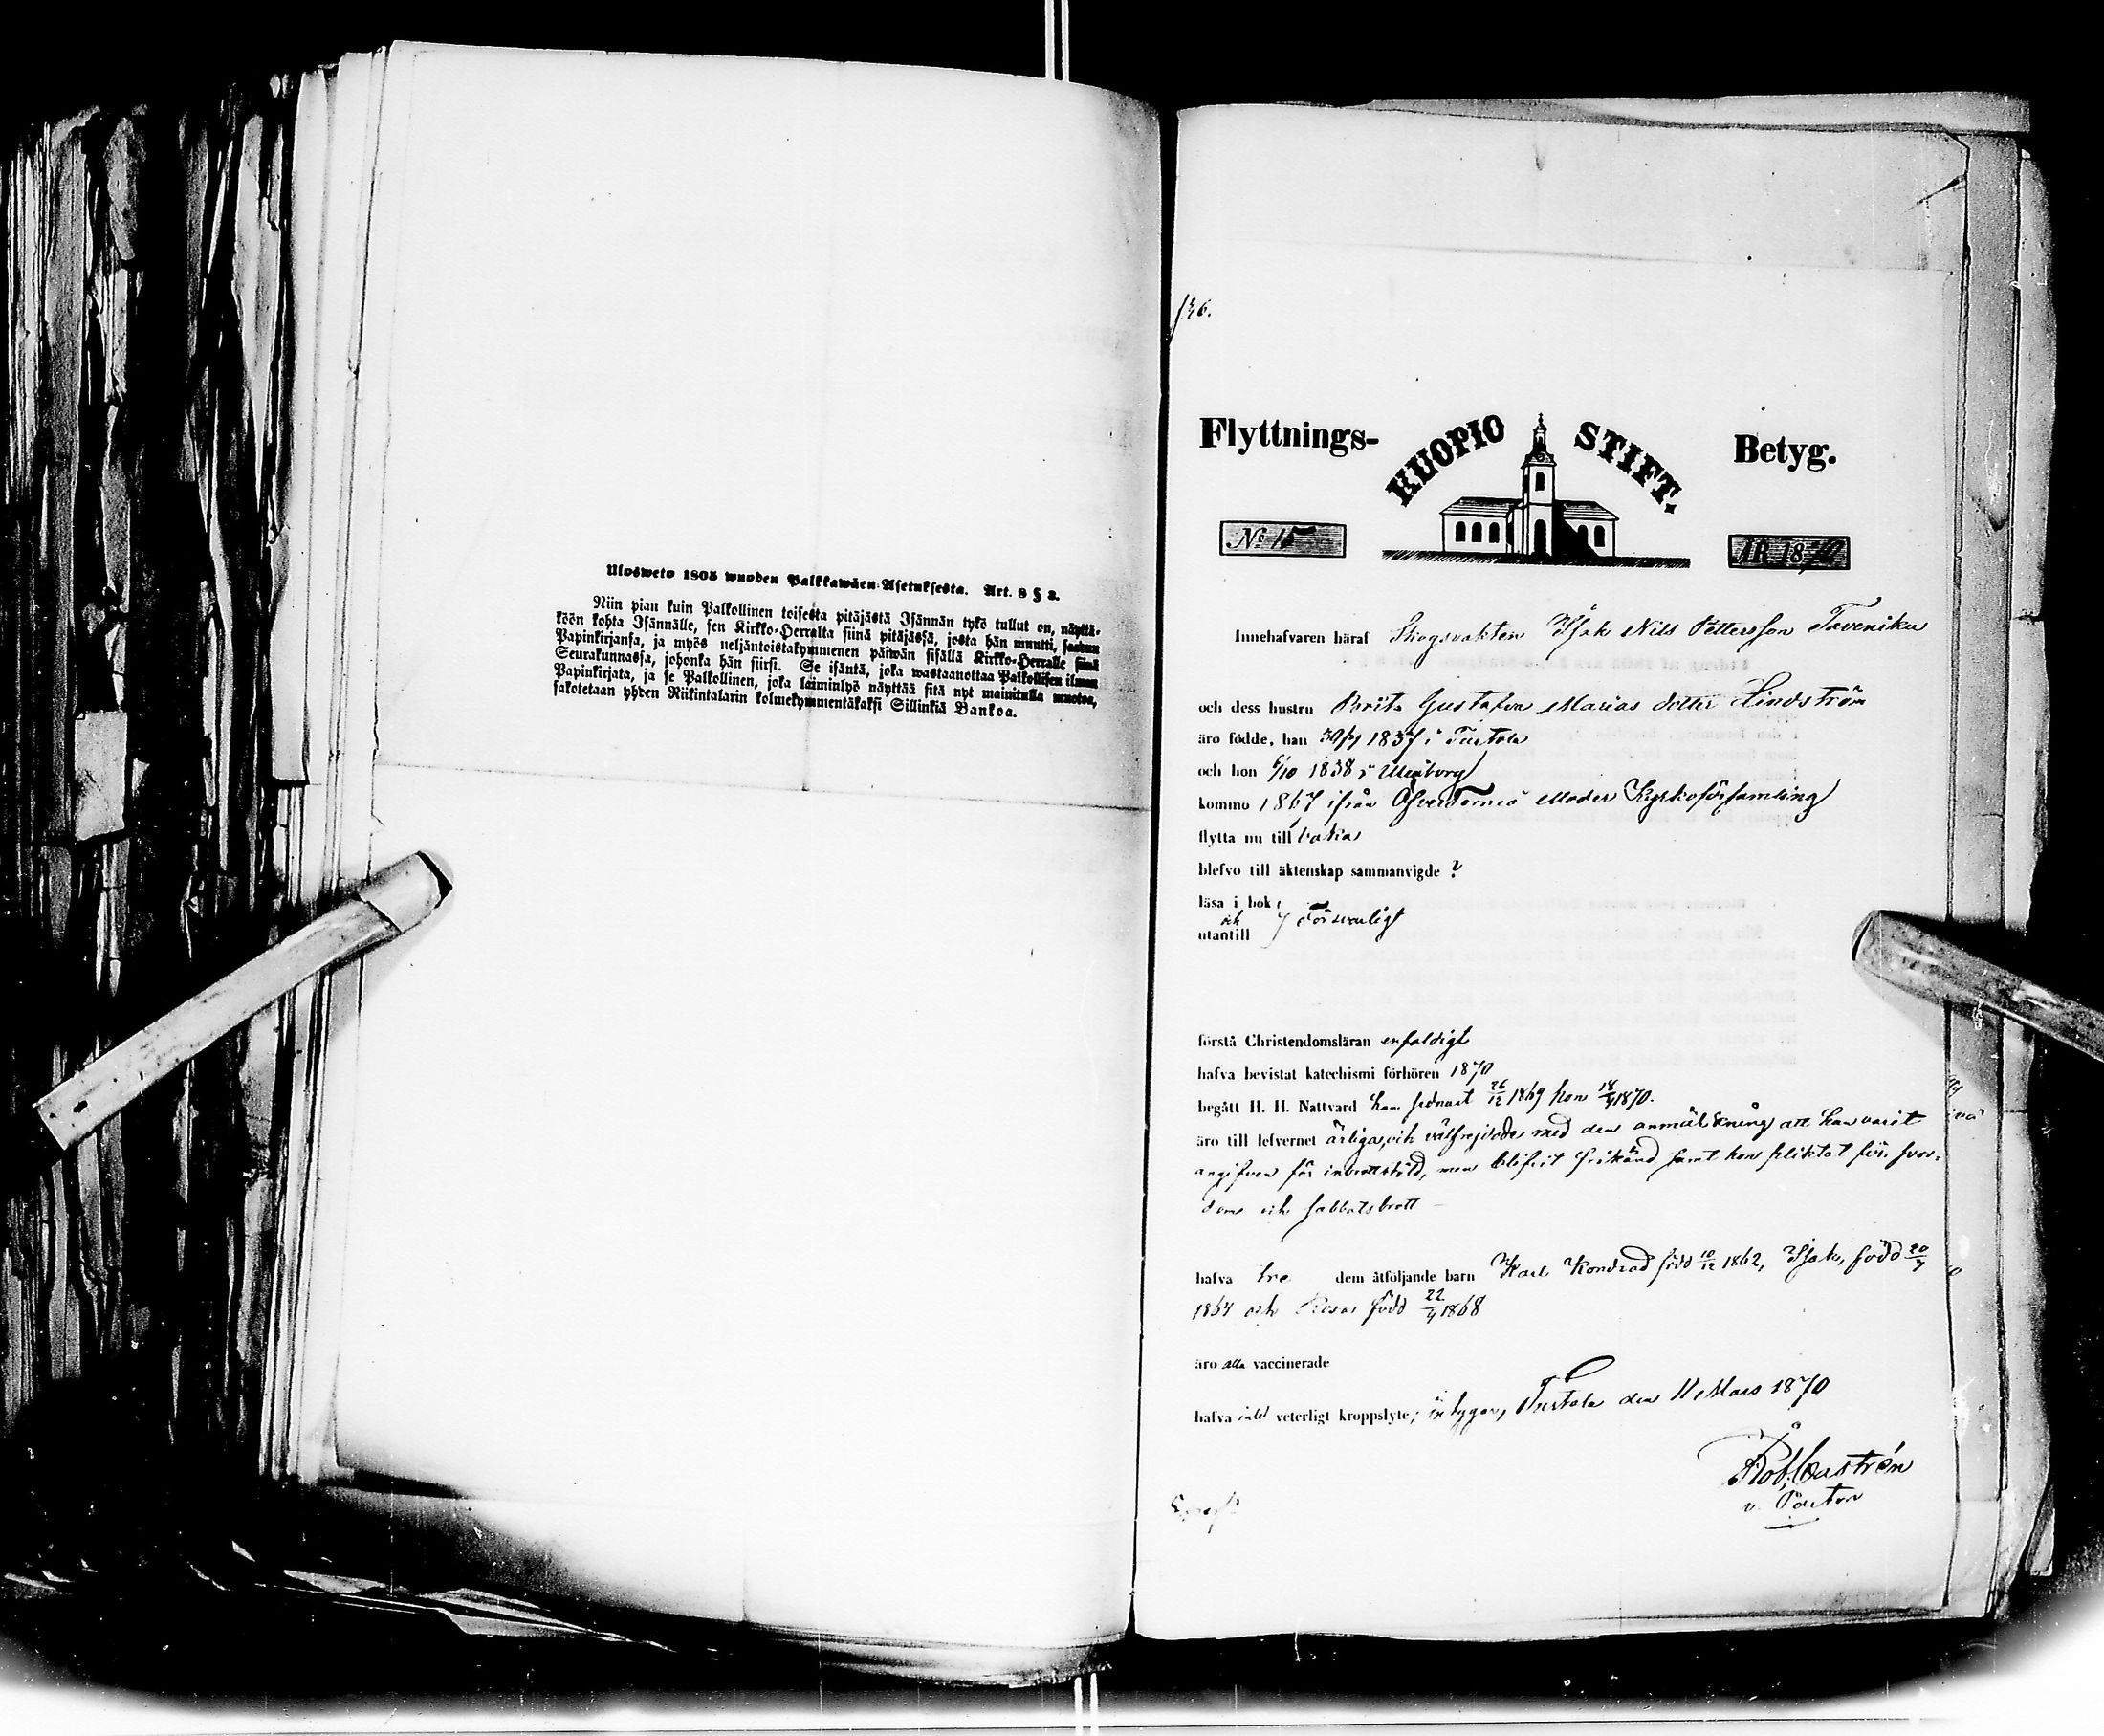 Ulosweto 1805 wuoden Palkkawäen-Asetuksesta. Art. 8 § 3.
Niin pian kuin Palkollinen toisesta pitäjästä Isännän tykö tullut on, näyttä-
köön kohta Isännälle, sen Kirkko-Herralta siinä pitäjässä, josta hän muutti, saadun
Papinkirjansa, ja myös neljäntoistakymmenen päiwän sisällä Kirkko-Herralle siinä
Seurakunnassa, johonka hän siirsi. Se isäntä, joka wastaanottaa Palkollisen ilman
Papinkirjata, ja se Palkollinen, joka laiminlyö näyttää sitä nyt mainitulla muotoa,
sakotetaan yhden Riikintalarin kolmekymmentäkaksi Sillinkiä Bankoa.
Flyttnings- KUOPIO STIFT. Betyg.
No 15 ÅR 1870
Innehafvaren häraf Skogsvakten Isak Nils Pettersson Taveniku
och dess hustru Brita Gustafva Marias dotter Lindström
äro födde, han 1837 i Turtola
och hon 6/10 1838 i Uleåborg
kommo 1867 ifrån ÖfverTorneå Moder Kyrkoförsamling
flytta nu till baka
blefvo till äktenskap sammanvigde ?
läsa i bok
och försvarligt
utantill
förstå Christendomsläran enfaldigt
hafva bevistat katechismi förhören 1870
begått H. H. Nattvard han sednast 26/12 1869 hon 1870.
äro till lefvernet ärliga och välfrejdade med den anmärkning att han varit
angifven för inbrottstöld, men blifvit frikänd samt hon pliktat för
och sabbatsbrott
hafva tre dem åtföljande barn Karl Kondrad född 10/12 1862, Isak, född 20/7
1864 och Rosa född 22/4 1868
äro alla vaccinerade
hafva intet veterligt kroppslyte; intygar, Turtola den 11 Mars 1870
Rob. Castrén
v. Pastor